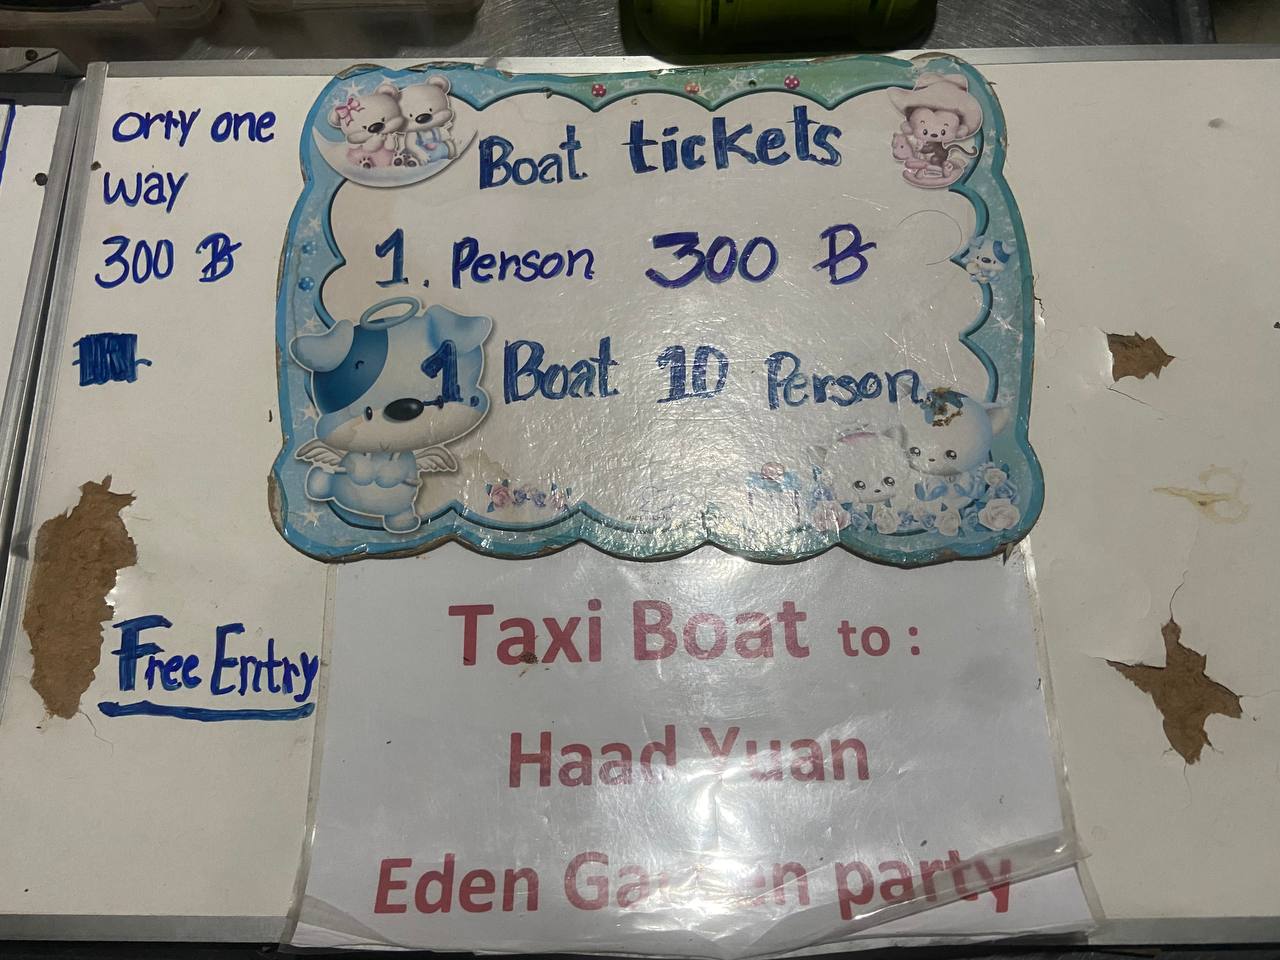 only one
way
300 ฿
Boat tickets
1. Person 300 ฿
1. Boat 10 Person
Free Entry
Taxi Boat to :
Haad Yuan
Eden Garden party